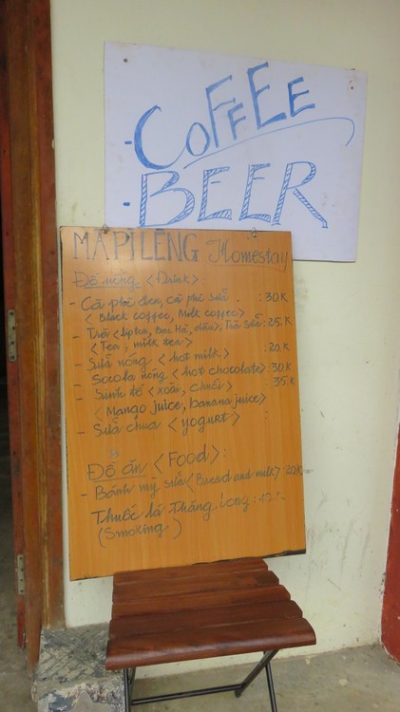 -COFFEE
-BEER
MAPILENG Homestay
Đồ uống <Drink>:
- Cà phê đen, cà phê sữa . : 30K
< Black coffee, Milk coffee>
- Trà <lipton, Bạc Hà, dâu>, Trà Sữa: 25K
<Tea, milk tea>
- Sữa nóng <hot milk> : 20K
- Socola nóng <hot chocolate>: 30K
- Sinh tố <xoài, chuối> : 35K
<Mango juice, banana juice>
- Sữa chua <yogurt>
Đồ ăn <Food>:
- Bánh mỳ sữa <Bread and milk>: 20K
Thuốc lá Thăng Long:
(Smoking)